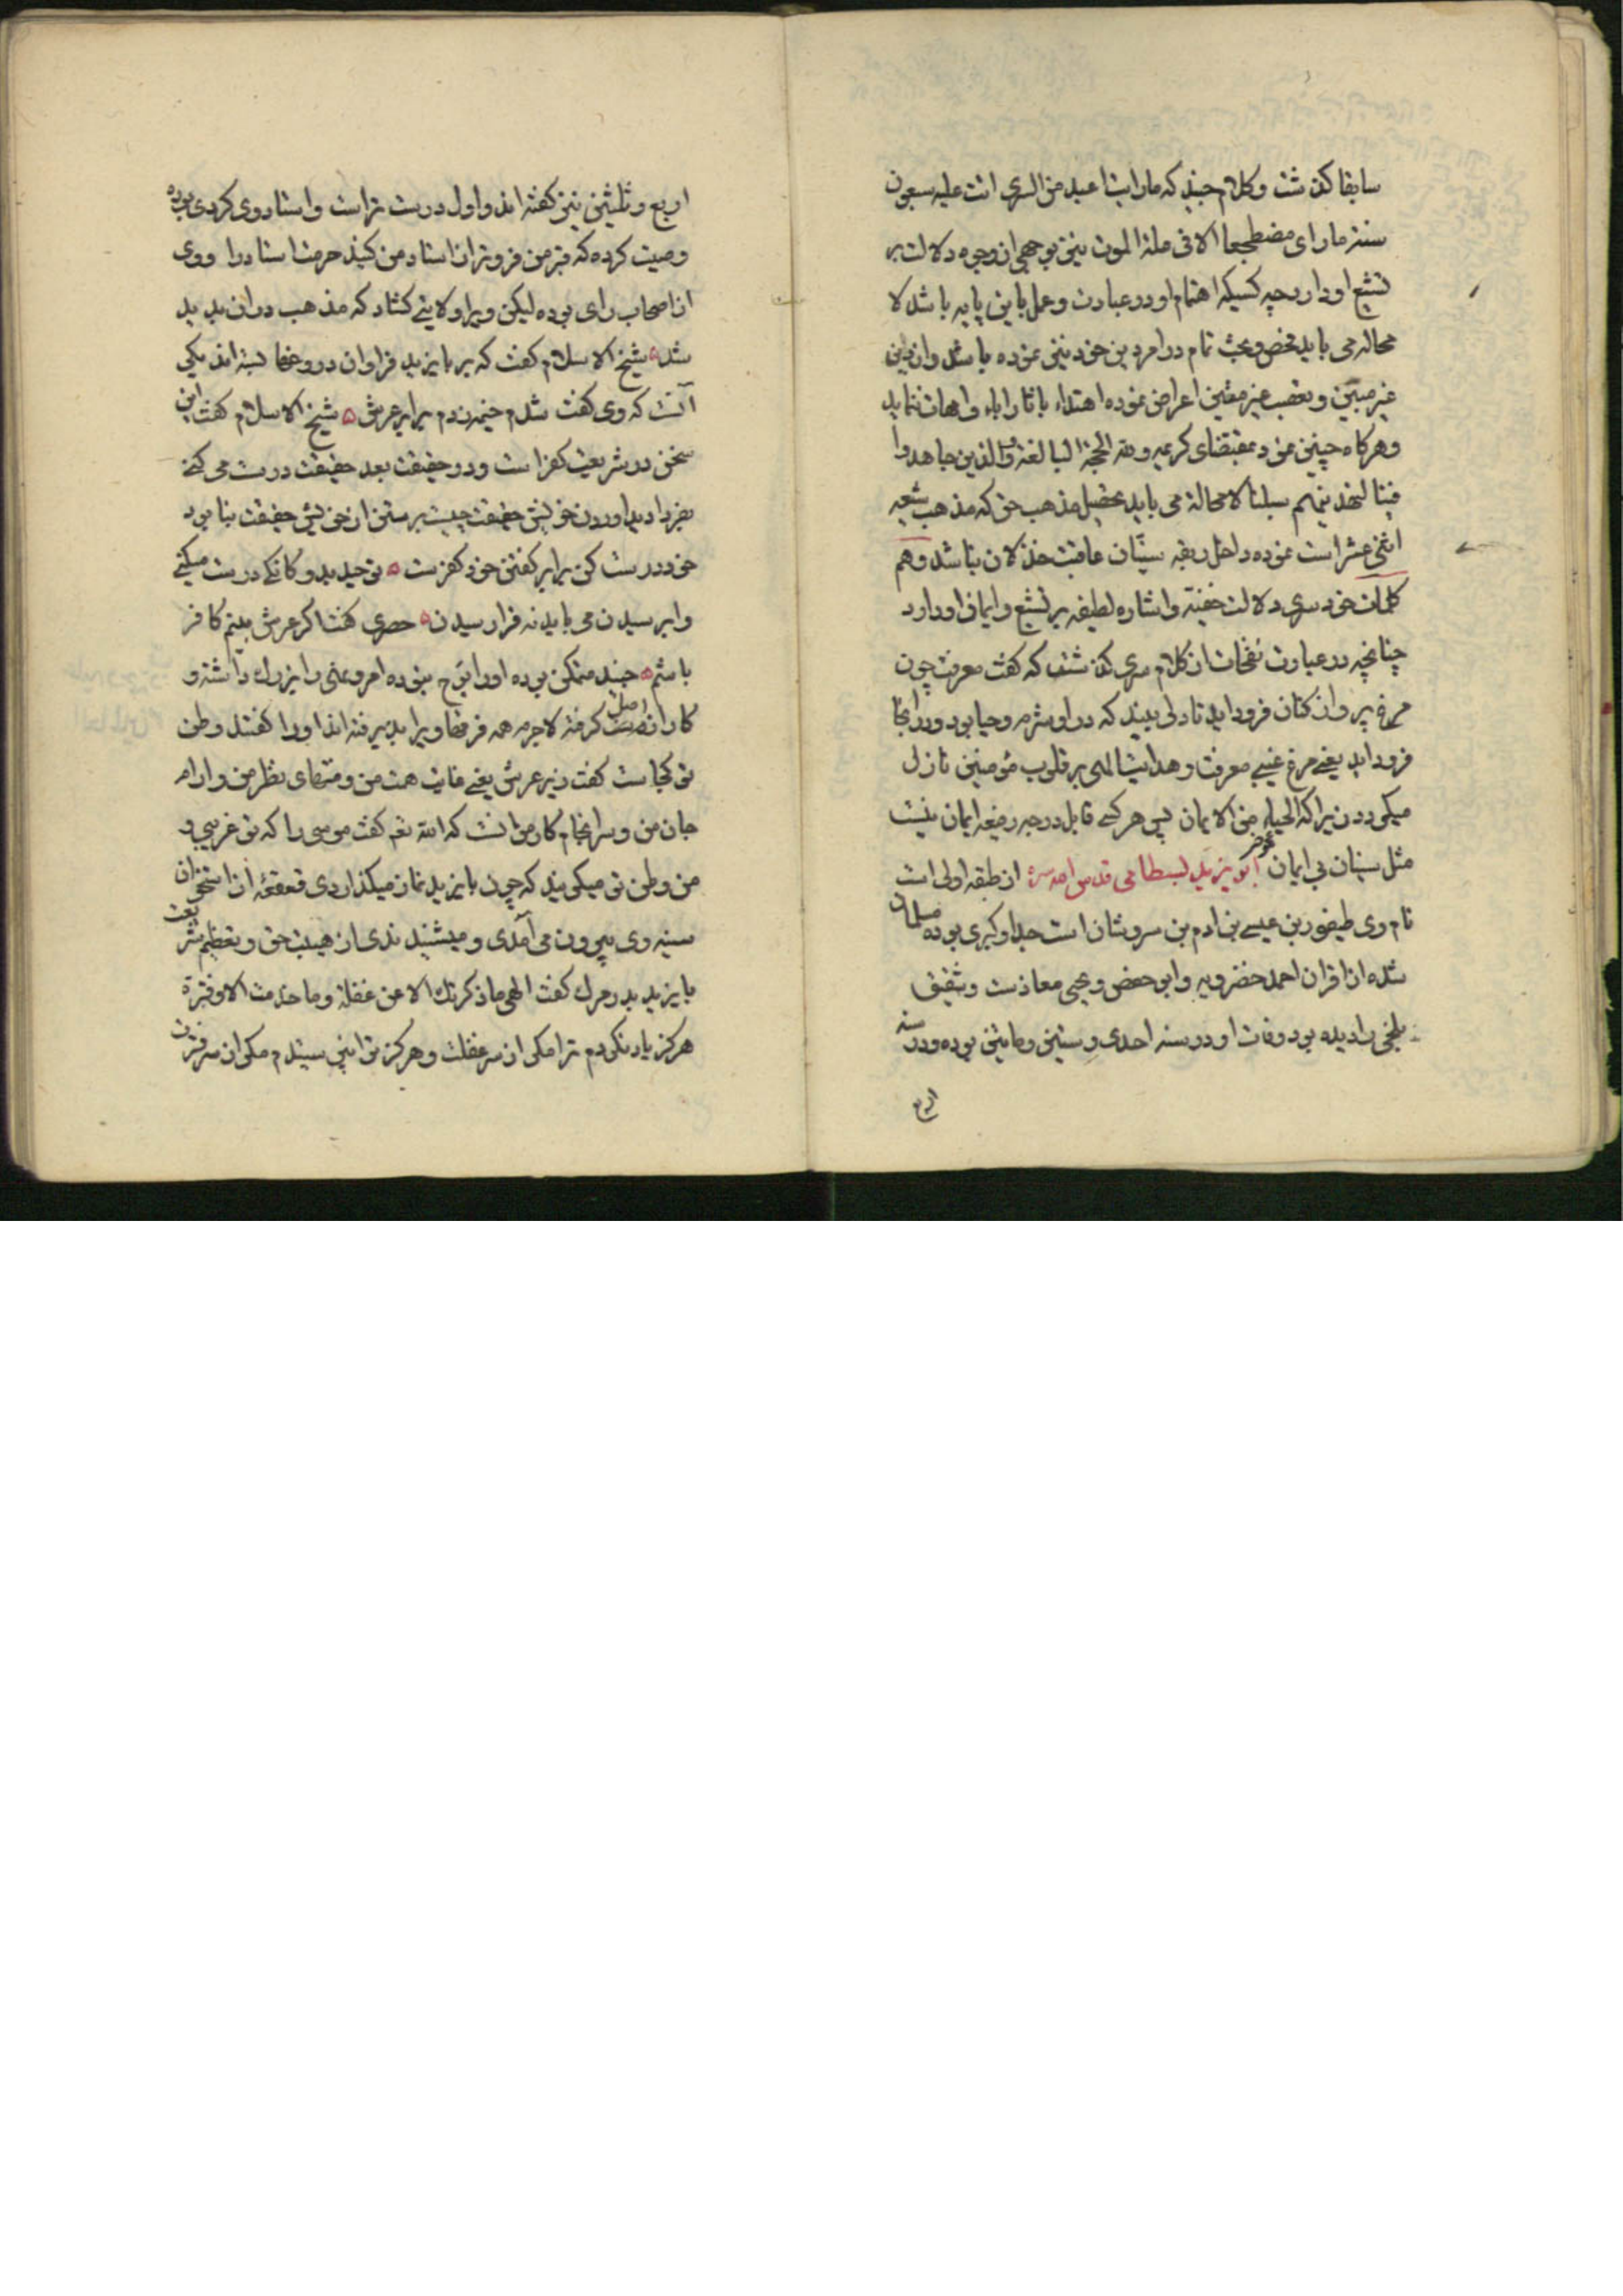 سابقا کذشت و کلام جنید که ما رایت اعبد من السری اتت علیه سبعون
سنة ما رای مضطجعا الا فی علة الموت نیز بوجهی از وجوه دلالت بر
تشیع او دارد چه کسیکه اهتمام او در عبادت و عمل باین پایه باشد لا
محاله می باید تفحص و بحث تمام در امر دین خود نیز نموده باشد و از دین
غیر مبین و تعصب غیر متین اعراض نموده اهتداء باثار اباء و امهات ننماید
و هرکاه چنین نمود بمقتضای کریمه و لله الحجة البالغة و الذین جاهدوا
فینا لنهدینهم سبلنا لا محالة می باید تحصیل مذهب حق که مذهب شیعه
اثنی عشر است نموده داخل ربقه سنیان عاقبت خذلان نباشد و هم
کلمات خود سری دلالت خفیة و اشاره لطیفه بر تشیع و ایمان او دارد
چنانچه در عبارت نفحات از کلام سری کذشت که کفت معرفت چون
مرغ پروازکنان فرود اید تا دلی بیند که در او شرم و حیا بود در انجا
فرود اید یعنی مرغ غیبی معرفت و هدایت الهی بر قلوب مؤمنین نازل
میکردد زیرا که الحیاء من الایمان پس هر کسی قابل درجه رفیعه ایمان نیست
مثل سنیان بی ایمان ابو یزید بسطامی قدس الله سره از طبقه اولی است
نام وی طیفور بن عیسی بن ادم بن سروشان است جد او کبری بوده مسلمان
شده از اقران احمد خضرویه و ابو حفص و یحیی معاذست و شقیق
بلخی را دیده بود وفات او در سنه احدی و ستین و ماتین بوده و در سنه
اربع
اربع و ثلثین نیز کفته اند و اول درست تر است و استاد وی کردی بوده
وصیت کرده که قبر من فروتر از استاد من کنید حرمت استاد را و وی
از اصحاب رای بوده لیکن ویرا ولایتی کشاد که مذهب در ان پدید
شد شیخ الاسلام کفت که بر بایزید فراوان دروغها بسته اند یکی
آنست که وی کفت شدم خیمه زدم برابر عرش شیخ الاسلام کفت این
سخن در شریعت کفر است و در حقیقت بعد حقیقت درست می کنی
بفرا دید اوردن خویش حقیقت چیست برستن از خویش حقیقت بنا بود
خود درست کن برابر کفتن خود کفرست توحید بدوکانکی درست میکنی
وا برسیدن می باید نه فرا رسیدن حصری کفت اکر عرش بینم کافر
باشم جنید متمکن بوده او را بوح نبوده امر و نهی را بزرك داشته و
کار از اصل کرفته لاجرم همه فرقها ویرا بپذیرفته اند او را کفتند وطن
تو کجاست کفت زیر عرش یعنی غایت همت من و منتهای نظر من و ارام
جان من و سرانجام کار من انست که الله تعم کفت موسی را که تو غریبی و
من وطن تو میکویند که چون بایزید نماز میکذاردی قعقعهٔ از استخوان
سینه وی بیرون می آمدی و میشنیدندی از هیبت حق و تعظیم شریعت
بایزید بدر مرك کفت الهی ما ذکرتك الا عن غفلة و ما خدمت الا و فترة
هرکز یاد نکردم ترا مکر از سر غفلت و هرکز ترا نپرستیدم مکر از سر فترت